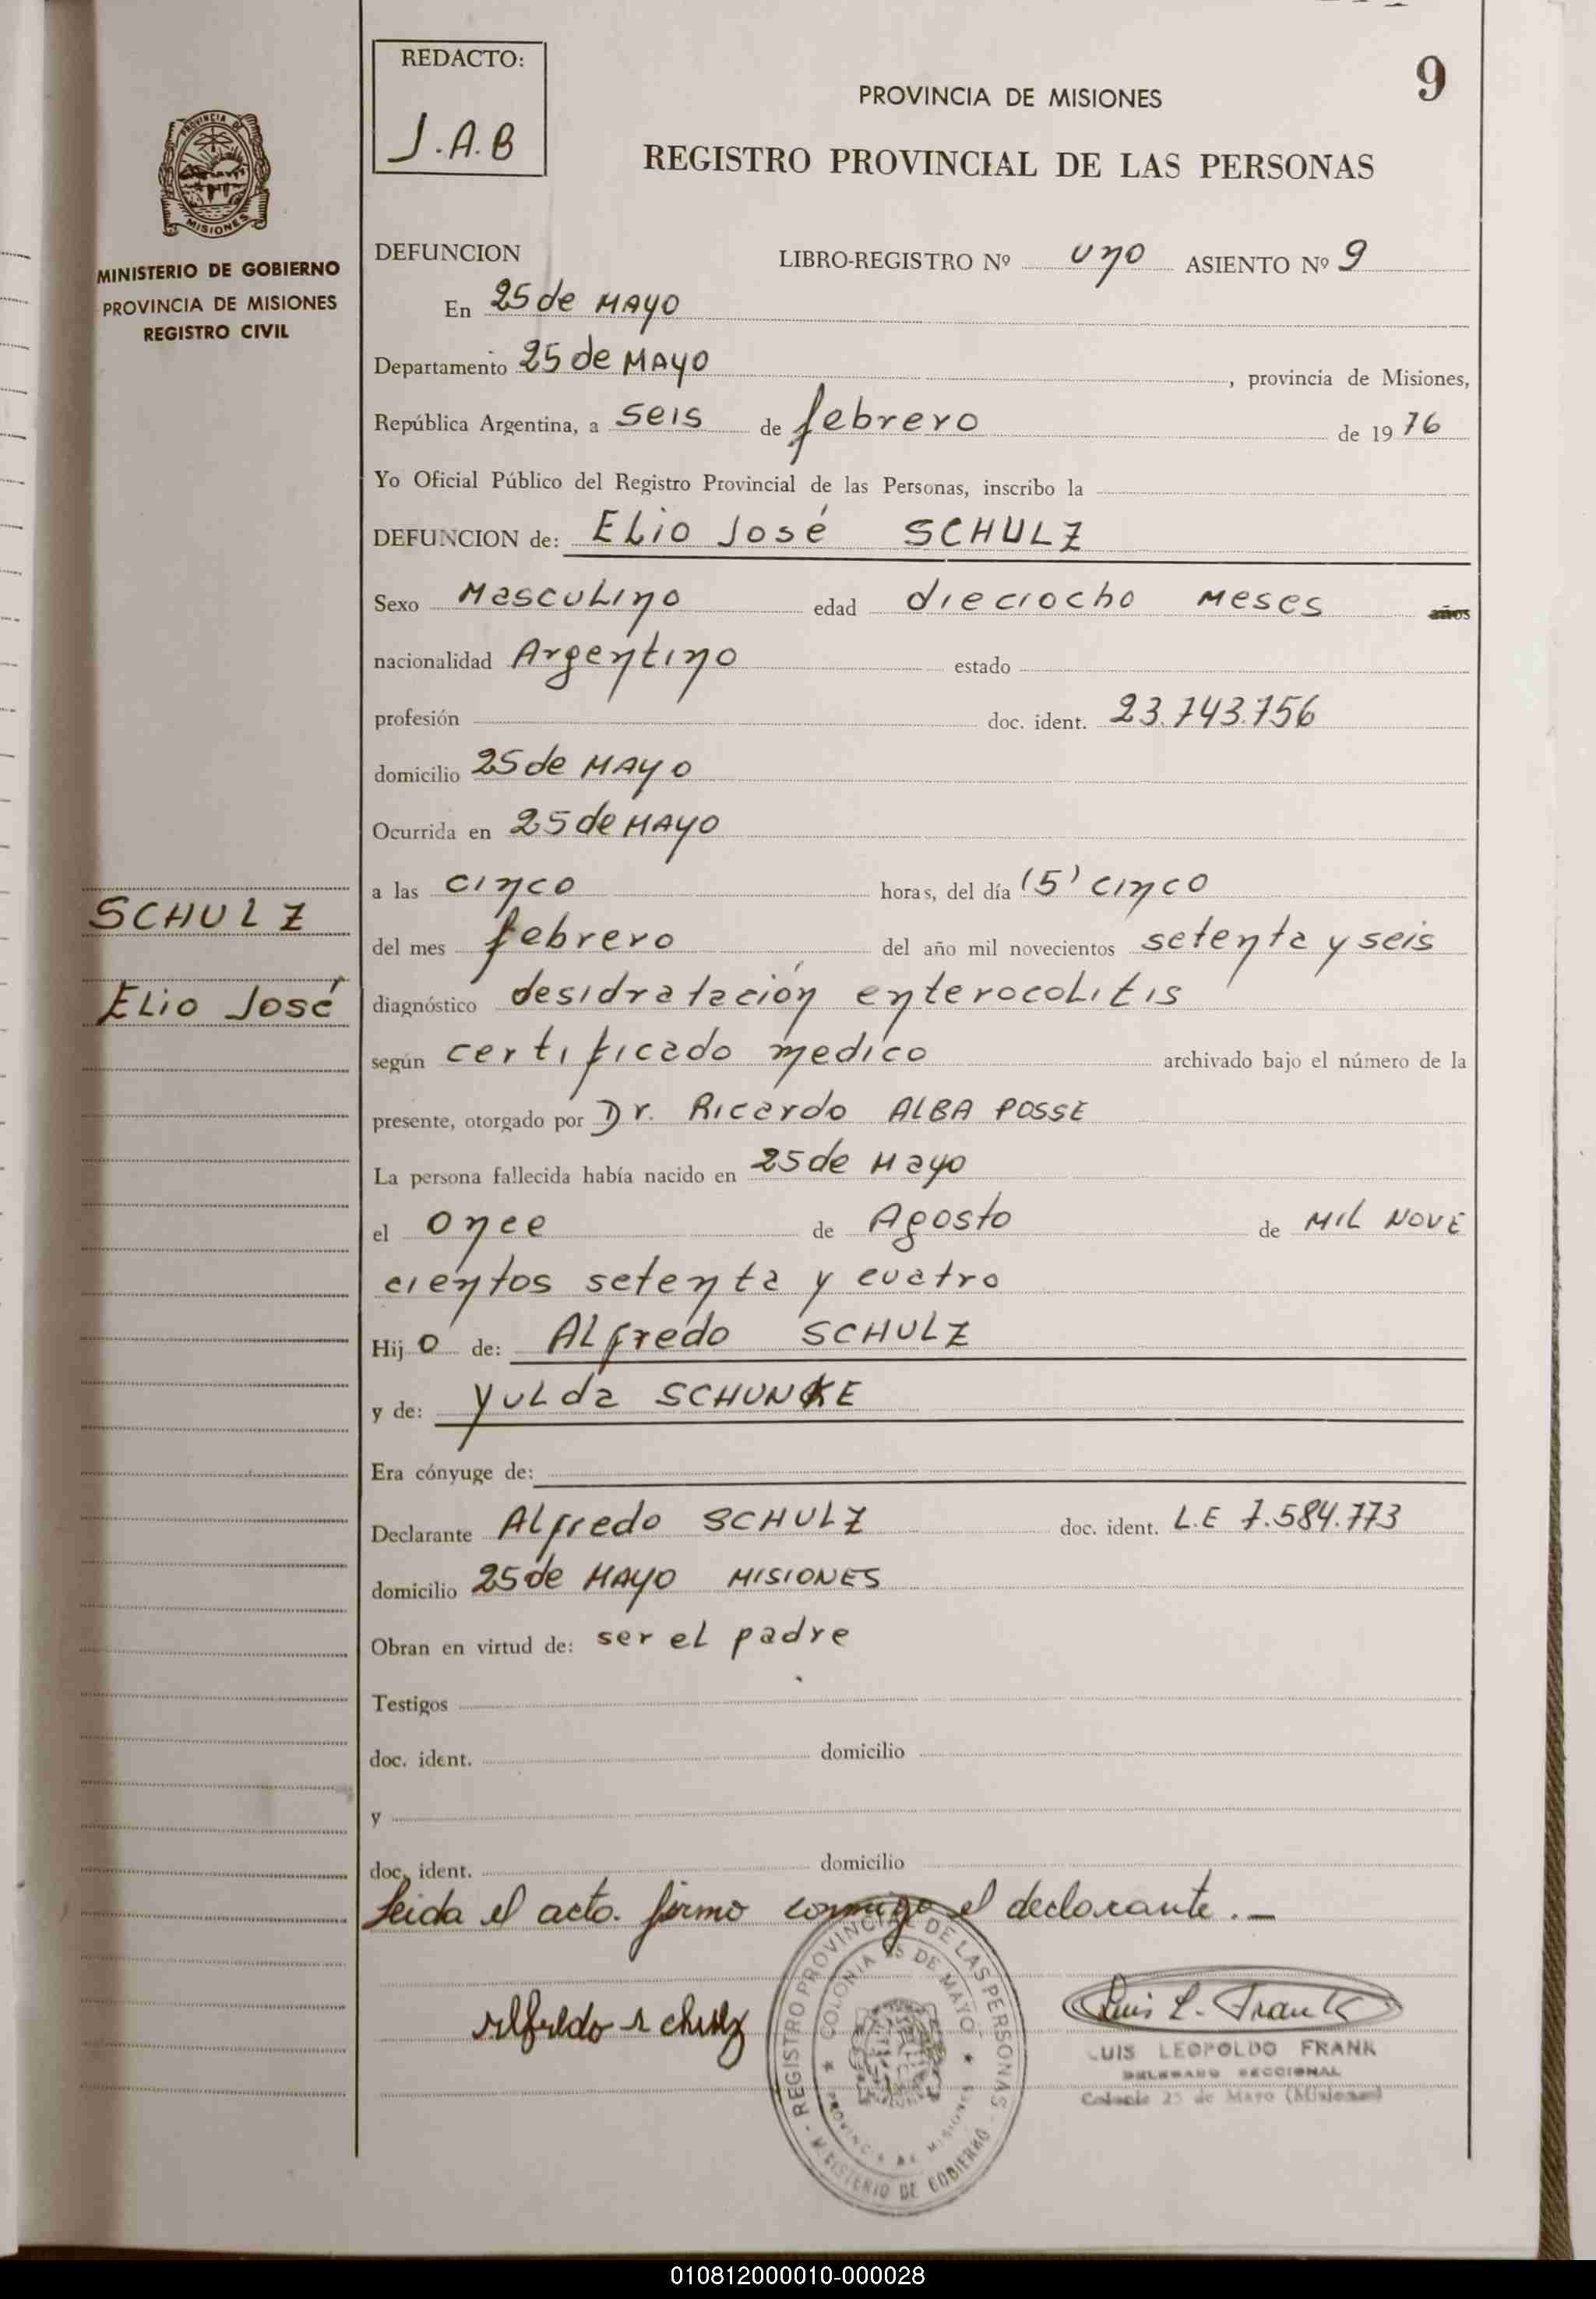 REDACTO:
J.A.B
9
PROVINCIA DE MISIONES
REGISTRO PROVINCIAL DE LAS PERSONAS
PROVINCIA DE
MISIONES
MINISTERIO DE GOBIERNO
PROVINCIA DE MISIONES
REGISTRO CIVIL
DEFUNCION LIBRO-REGISTRO Nº uno ASIENTO Nº 9
En 25 de MAYO
Departamento 25 de MAYO, provincia de Misiones,
República Argentina, a seis de febrero de 19 76
Yo Oficial Público del Registro Provincial de las Personas, inscribo la
DEFUNCION de: ELio José SCHULZ
Sexo Masculino edad dieciocho meses años
nacionalidad Argentino estado
profesión doc. ident. 23.743.756
domicilio 25 de MAYO
Ocurrida en 25 de MAYO
a las cinco horas, del día (5) cinco
del mes febrero del año mil novecientos setenta y seis
diagnóstico desidratación enterocolitis
según certificado medico archivado bajo el número de la
presente, otorgado por Dr. Ricardo ALBA POSSE
La persona fallecida había nacido en 25 de Mayo
el once de Agosto de MIL NOVE
cientos setenta y cuatro
Hij o de: ALfredo SCHULZ
y de: YULda SCHUNKE
Era cónyuge de:
Declarante ALfredo SCHULZ doc. ident. L.E 7.584.773
domicilio 25 de MAYO MISIONES
Obran en virtud de: ser el padre
Testigos
doc. ident. domicilio
y
doc. ident. domicilio
Leida el acta. firmo conmigo el declarante.—
SCHULZ
ELio José
Alfredo Schulz
REGISTRO PROVINCIAL DE LAS PERSONAS - MINISTERIO DE GOBIERNO -
COLONIA 25 DE MAYO
PROVINCIA DE MISIONES
Luis L. Frank
LUIS LEOPOLDO FRANK
DELEGADO SECCIONAL
Colonia 25 de Mayo (Misiones)
010812000010-000028